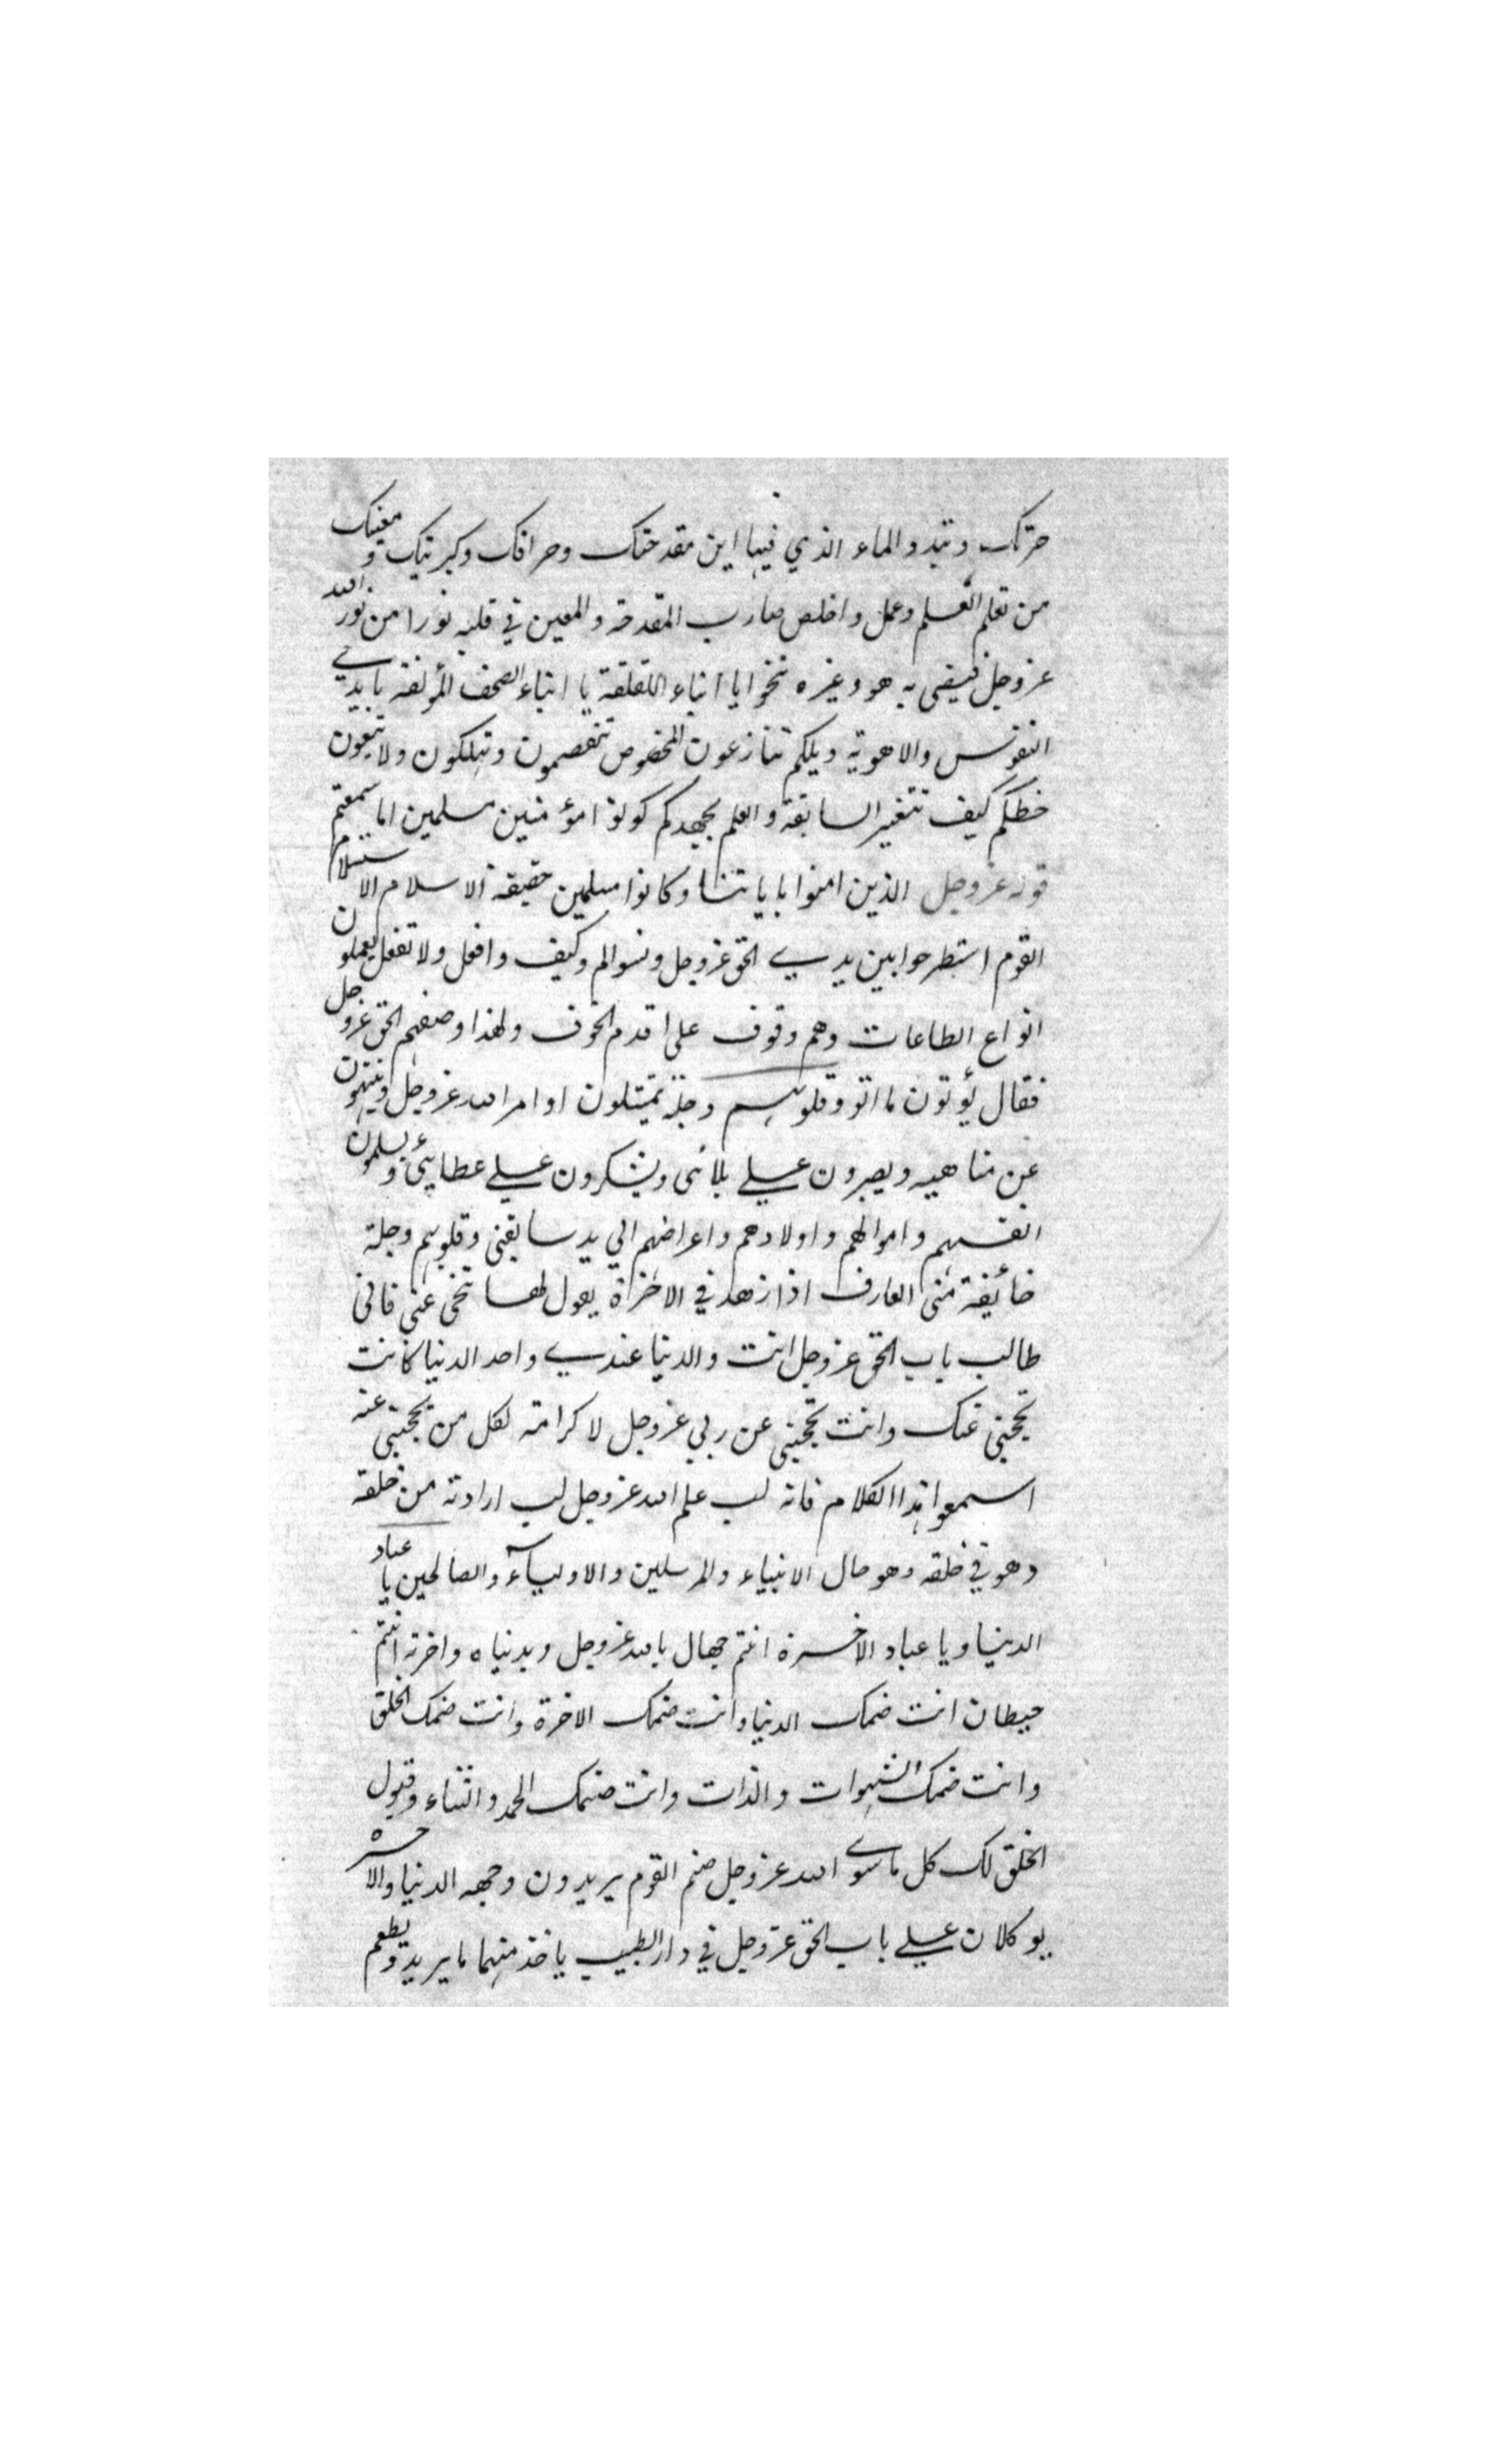 جرتك وتبدد الماء الذي فيها اين مقدحتك وحراقك وكبريتك ومعينك
من تعلم العلم وعمل واخلص صارب المقدحة والمعين في قلبه نورا من نور الله
عز وجل فيضى به هو وغيره تنحوا يا ابناء اللقلقة يا ابناء الصحف المؤلفة بايدي
النفوس والاهوية ويلكم تنازعون المخصوص تنقصمون وتهلكون ولا تبعون
خطكم كيف تتغير السابقة والعلم بجهدكم كونوا مؤمنين مسلمين اما سمعتم
قوله عز وجل الذين امنوا باياتنا وكانوا مسلمين حقيقة الاسلام الاستسلام
القوم استطرحوا بين يدي الحق عز وجل ونسوا لم وكيف وافعل ولا تفعل يعملون
انواع الطاعات وهم وقوف على اقدم الخوف ولهذا وصفهم الحق عز وجل
فقال يؤتون ما اتو وقلوبهم وجلة تمتثلون اوامر الله عز وجل وينتهون
عن مناهيه ويصبرون علي بلائى ويشكرون علي عطايئى ويسلمون
انفسهم واموالهم واولادهم واعراضهم الي يد سابقتى وقلوبهم وجلة
خائيفة منى العارف اذا زهد في الاخراة يقول لها تنحى عنى فانى
طالب باب الحق عز وجل انت والدنيا عندي واحد الدنيا كانت
تحجبنى عنك وانت تحجبنى عن ربي عز وجل لا كرامة لكل من تحجبنى عنه
اسمعوا هذا الكلام فانه لب علم الله عز وجل لب ارادته من خلقه
وهو في خلقه وهو حال الانبياء والمرسلين والاولياء والصالحين يا عباد
الدنيا ويا عباد الاخسرة انتم جهال بالله عز وجل وبدنياه واخرته انتم
حيطان انت ضمك الدنيا وانت ضمك الاخرة وانت ضمك الخلق
وانت ضمك الشهوات والذات وانت صنمك الحمد والثناء وقبول
الخلق لك كل ما سوي الله عز وجل صنم القوم يريدون وجهه الدنيا والاخرة
يوكلان علي باب الحق عز وجل في دار الطبيب ياخذ منهما ما يريد ويطعم